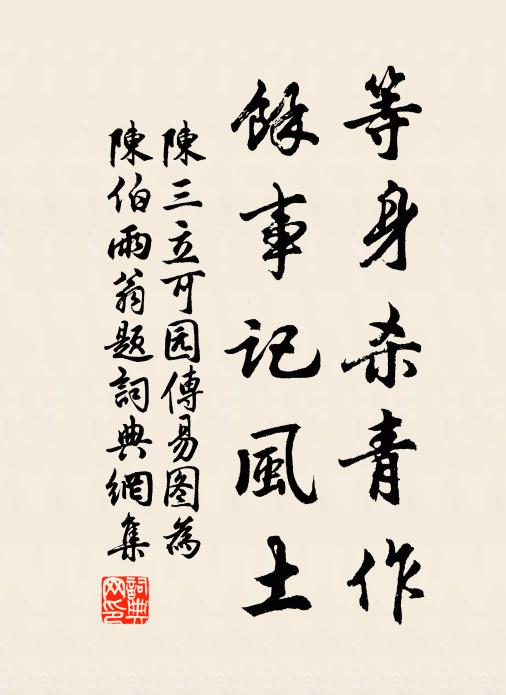 等身杀青作
餘事記風土
陳三立可园傳易图為
陳伯雨翁題詞典網集
詞典网印